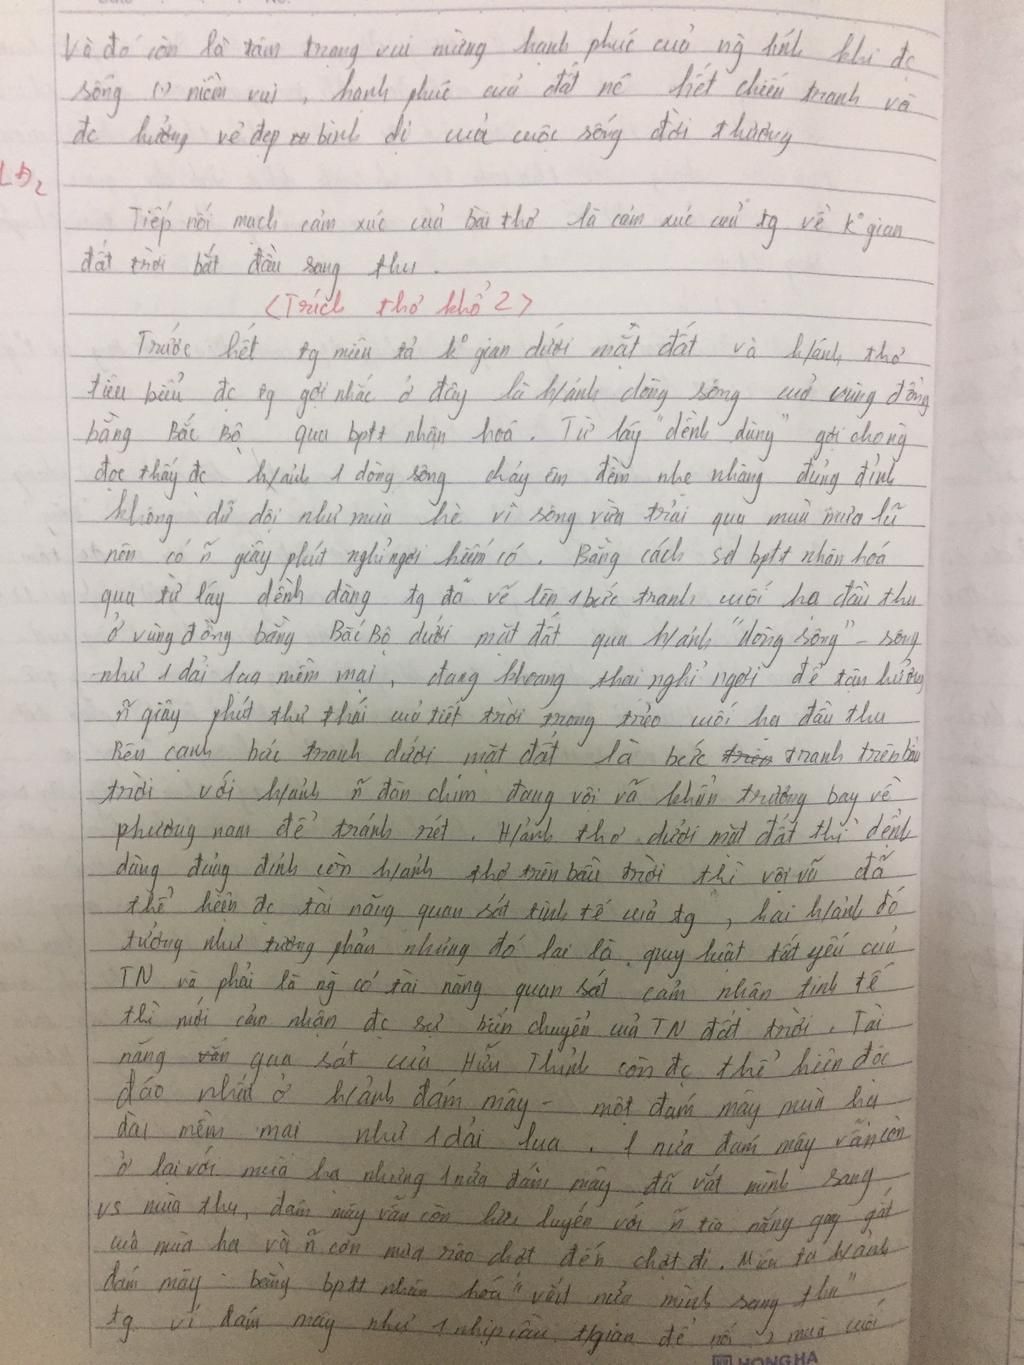 Và đó còn là tâm trạng vui mừng hạnh phúc cuả ng lính khi đc
sống niềm vui, hạnh phúc cuả đất nc hết chiến tranh và
đc hưởng vẻ đẹp bình dị cuả cuộc sống đời thường
LĐ2
Tiếp nối mạch cảm xúc cuả bài thơ là cảm xúc cuả tg về k° gian
đất trời bắt đầu sang thu.
<Trích thơ khổ 2>
Trước hết tg miêu tả k° gian dưới mặt đất và h/ảnh thơ
tiêu biểu đc tg gợi nhắc ở đây là h/ảnh dòng sông cuả vùng đồng
bằng Bắc Bộ qua bptt nhân hoá. Từ láy "dềnh dàng" gợi cho ng
đọc thấy đc h/ảnh 1 dòng sông chảy êm đềm nhẹ nhàng đủng đỉnh
không dữ dội như mùa hè vì sông vừa trải qua mùa mưa lũ
nên có ~n giây phút nghỉ ngơi hiếm có. Bằng cách sd bptt nhân hoá
qua từ láy dềnh dàng tg đã vẽ lên 1 bức tranh cuối hạ đầu thu
ở vùng đồng bằng Bắc Bộ dưới mặt đất qua h/ảnh "dòng sông" - sông
như 1 dải lụa mềm mại, đang khoang thai nghỉ ngơi để tận hưởng
~n giây phút thư thái cuả tiết trời trong trẻo cuối hạ đầu thu
Bên cạnh bức tranh dưới mặt đất là bức tranh trên bầu
trời với h/ảnh ~n đàn chim đang vội vã khẩn trương bay về
phương nam để tránh rét. H/ảnh thơ dưới mặt đất thì dềnh
dàng đủng đỉnh còn h/ảnh thơ trên bầu trời thì vội vã đã
thể hiện đc tài năng quan sát tinh tế cuả tg, hai h/ảnh đó
tưởng như tương phản nhưng đó lại là quy luật tất yếu cuả
TN và phải là ng có tài năng quan sát cảm nhận tinh tế
thì mới cảm nhận đc sự biến chuyển cuả TN đất trời. Tài
năng qua sát cuả Hữu Thỉnh còn đc thể hiện độc
đáo nhất ở h/ảnh đám mây - một đám mây mùa hạ
dài mềm mại như 1 dải lụa. 1 nửa đám mây vẫn còn
ở lại với mùa hạ nhưng 1 nửa đám mây đã vắt mình sang
vs mùa thu, đám mây vẫn còn lưu luyến với ~n tia nắng gay gắt
cuả mùa hạ và ~n cơn mưa rào chợt đến chợt đi. Miêu tả h/ảnh
đám mây bằng bptt nhân hoá "vắt nửa mình sang thu"
tg ví đám mây như 1 nhịp cầu t/gian để nối 2 mùa cuối
HONG HA